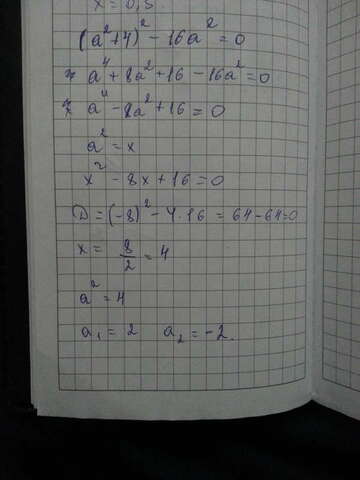 x = 0,5
(a²+4)² - 16a² = 0
a⁴ + 8a² + 16 - 16a² = 0
a⁴ - 8a² + 16 = 0
a² = x
x² - 8x + 16 = 0
D = (-8)² - 4 · 16 = 64 - 64 = 0
x = 8/2 = 4
a² = 4
a₁ = 2 a₂ = -2.